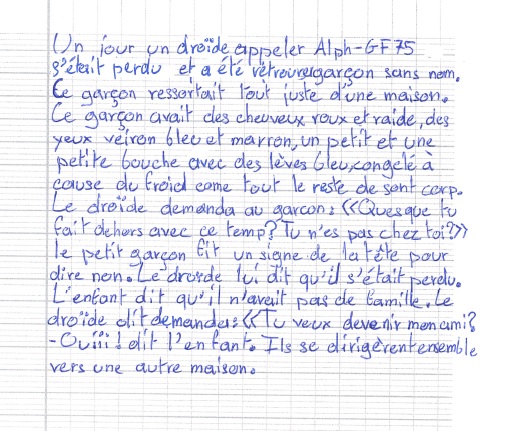 Un jour un droïde appeler Alph-GF75
s'était perdu et a été retrouver garçon sans nom.
Ce garçon ressortait tout juste d'une maison.
Ce garçon avait des cheuveux roux et raide, des
yeux veiron bleu et marron, un petit et une
petite bouche avec des lèves bleu, congelé à
cause du froid come tout le reste de sont corp.
Le droïde demanda au garcon : «Quesque tu
fait dehors avec ce temp? Tu n'es pas chez toi?»
le petit garçon fit un signe de la tête pour
dire non. Le droïde lui dit qu'il s'était perdu.
L'enfant dit qu'il n'avait pas de famille. Le
droïde dit demanda : «Tu veux devenir mon ami?
-Ouiii! dit l'enfant. Ils se dirigèrent ensemble
vers une autre maison.